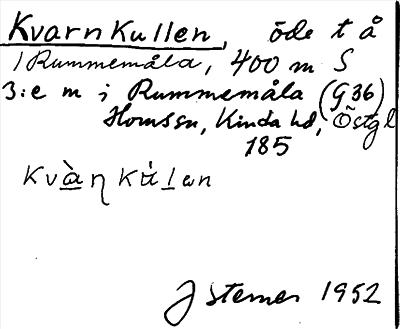 KvarnKullen, öde t å
/ Rummemåla, 400 m S
3:e m i Rummemåla (G36)
Homssn, Kinda hd, Östgl
185
Kvàŋ Kùlen
J Sterner 1952